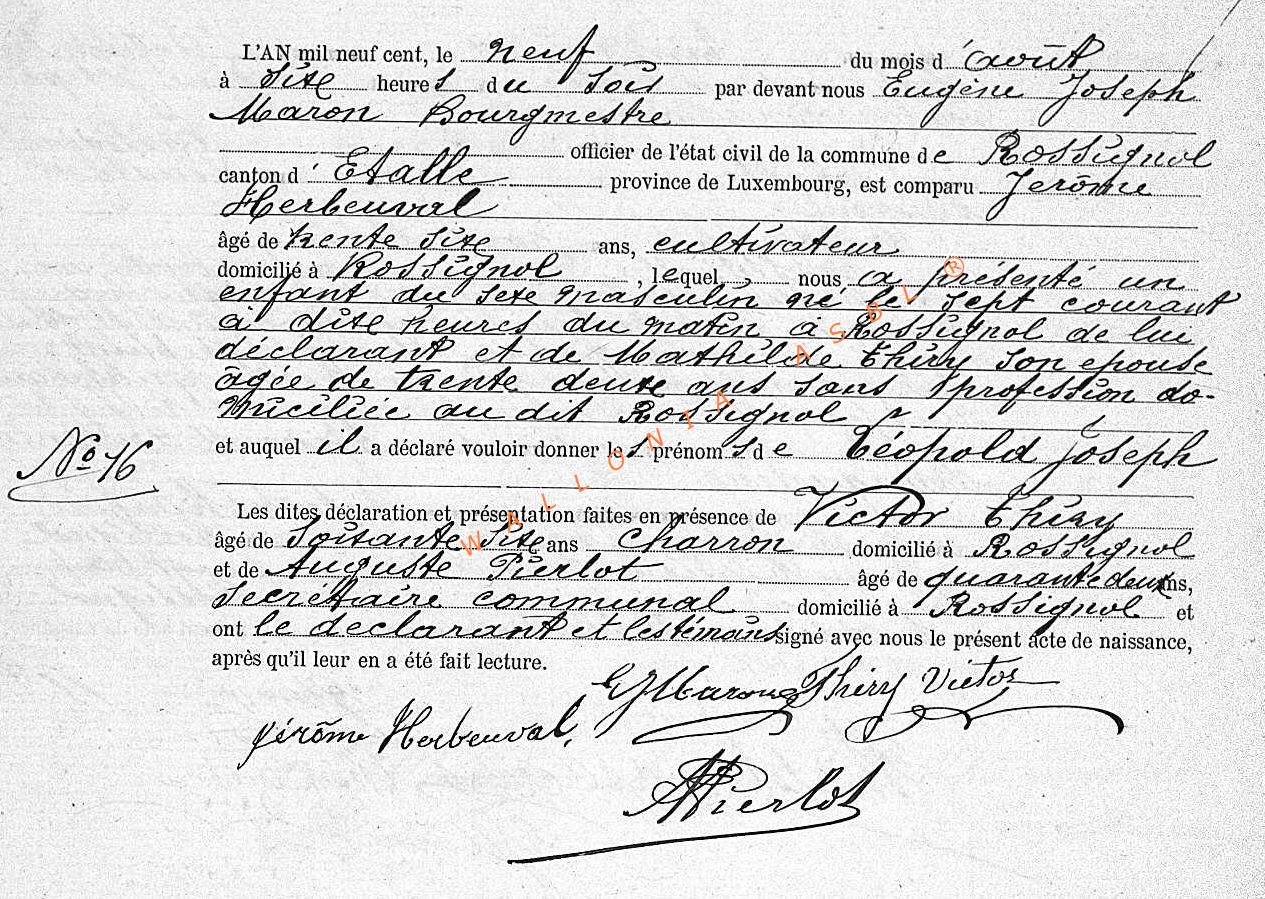 L'AN mil neuf cent, le neuf du mois d'août
à six heures du soir par devant nous Eugène Joseph
Maron Bourgmestre
officier de l'état civil de la commune de Rossignol
canton d'Etalle province de Luxembourg, est comparu Jerôme
Herbeuval
âgé de trente six ans, cultivateur
domicilié à Rossignol, lequel nous a présenté un
enfant du sexe masculin né le sept courant
à dix heures du matin à Rossignol de lui
déclarant et de Mathilde Thiry son epouse
âgée de trente deux ans sans profession do-
miciliée au dit Rossignol
No 16
et auquel il a déclaré vouloir donner les prénoms de Léopold Joseph
Les dites déclaration et présentation faites en présence de Victor Thiry
âgé de soixante six ans charron domicilié à Rossignol
et de Auguste Pierlot âgé de quarante deux ans,
secrétaire communal domicilié à Rossignol et
ont le déclarant et les témoins signé avec nous le présent acte de naissance,
après qu'il leur en a été fait lecture.
EJMaron Thiry Victor
Jérôme Herbeuval,
APierlot
WALLONIA ASBL ®